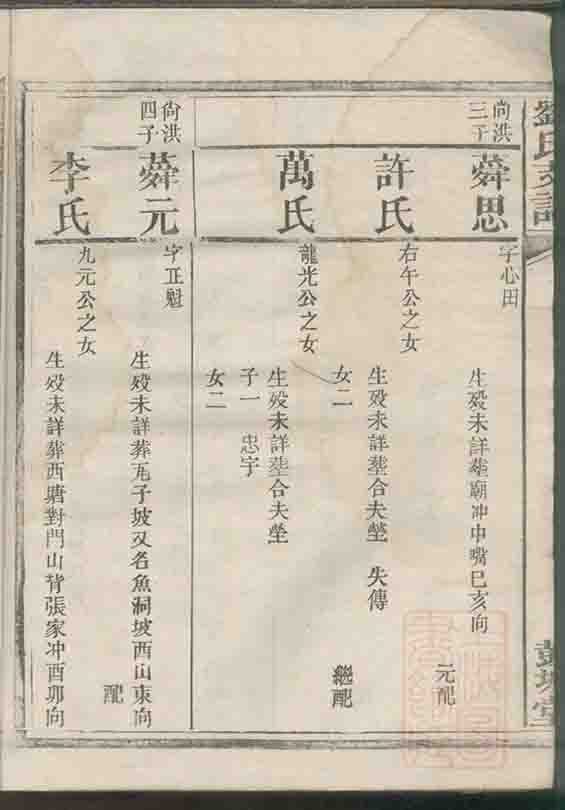 劉氏支譜
尙洪
三子
蕣思
字心田
生殁未詳葬廟冲中嘴巳亥向
元配
許氏
右午公之女
生殁未詳葬合夫塋 失傳
女二
繼配
萬氏
龍光公之女
生殁未詳葬合夫塋
子一 忠宇
女二
尙洪
四子
蕣元
字正魁
生殁未詳葬瓦子坡又名魚洞坡西山東向
配
李氏
九元公之女
生殁未詳葬西塘對門山背張家冲酉卯向